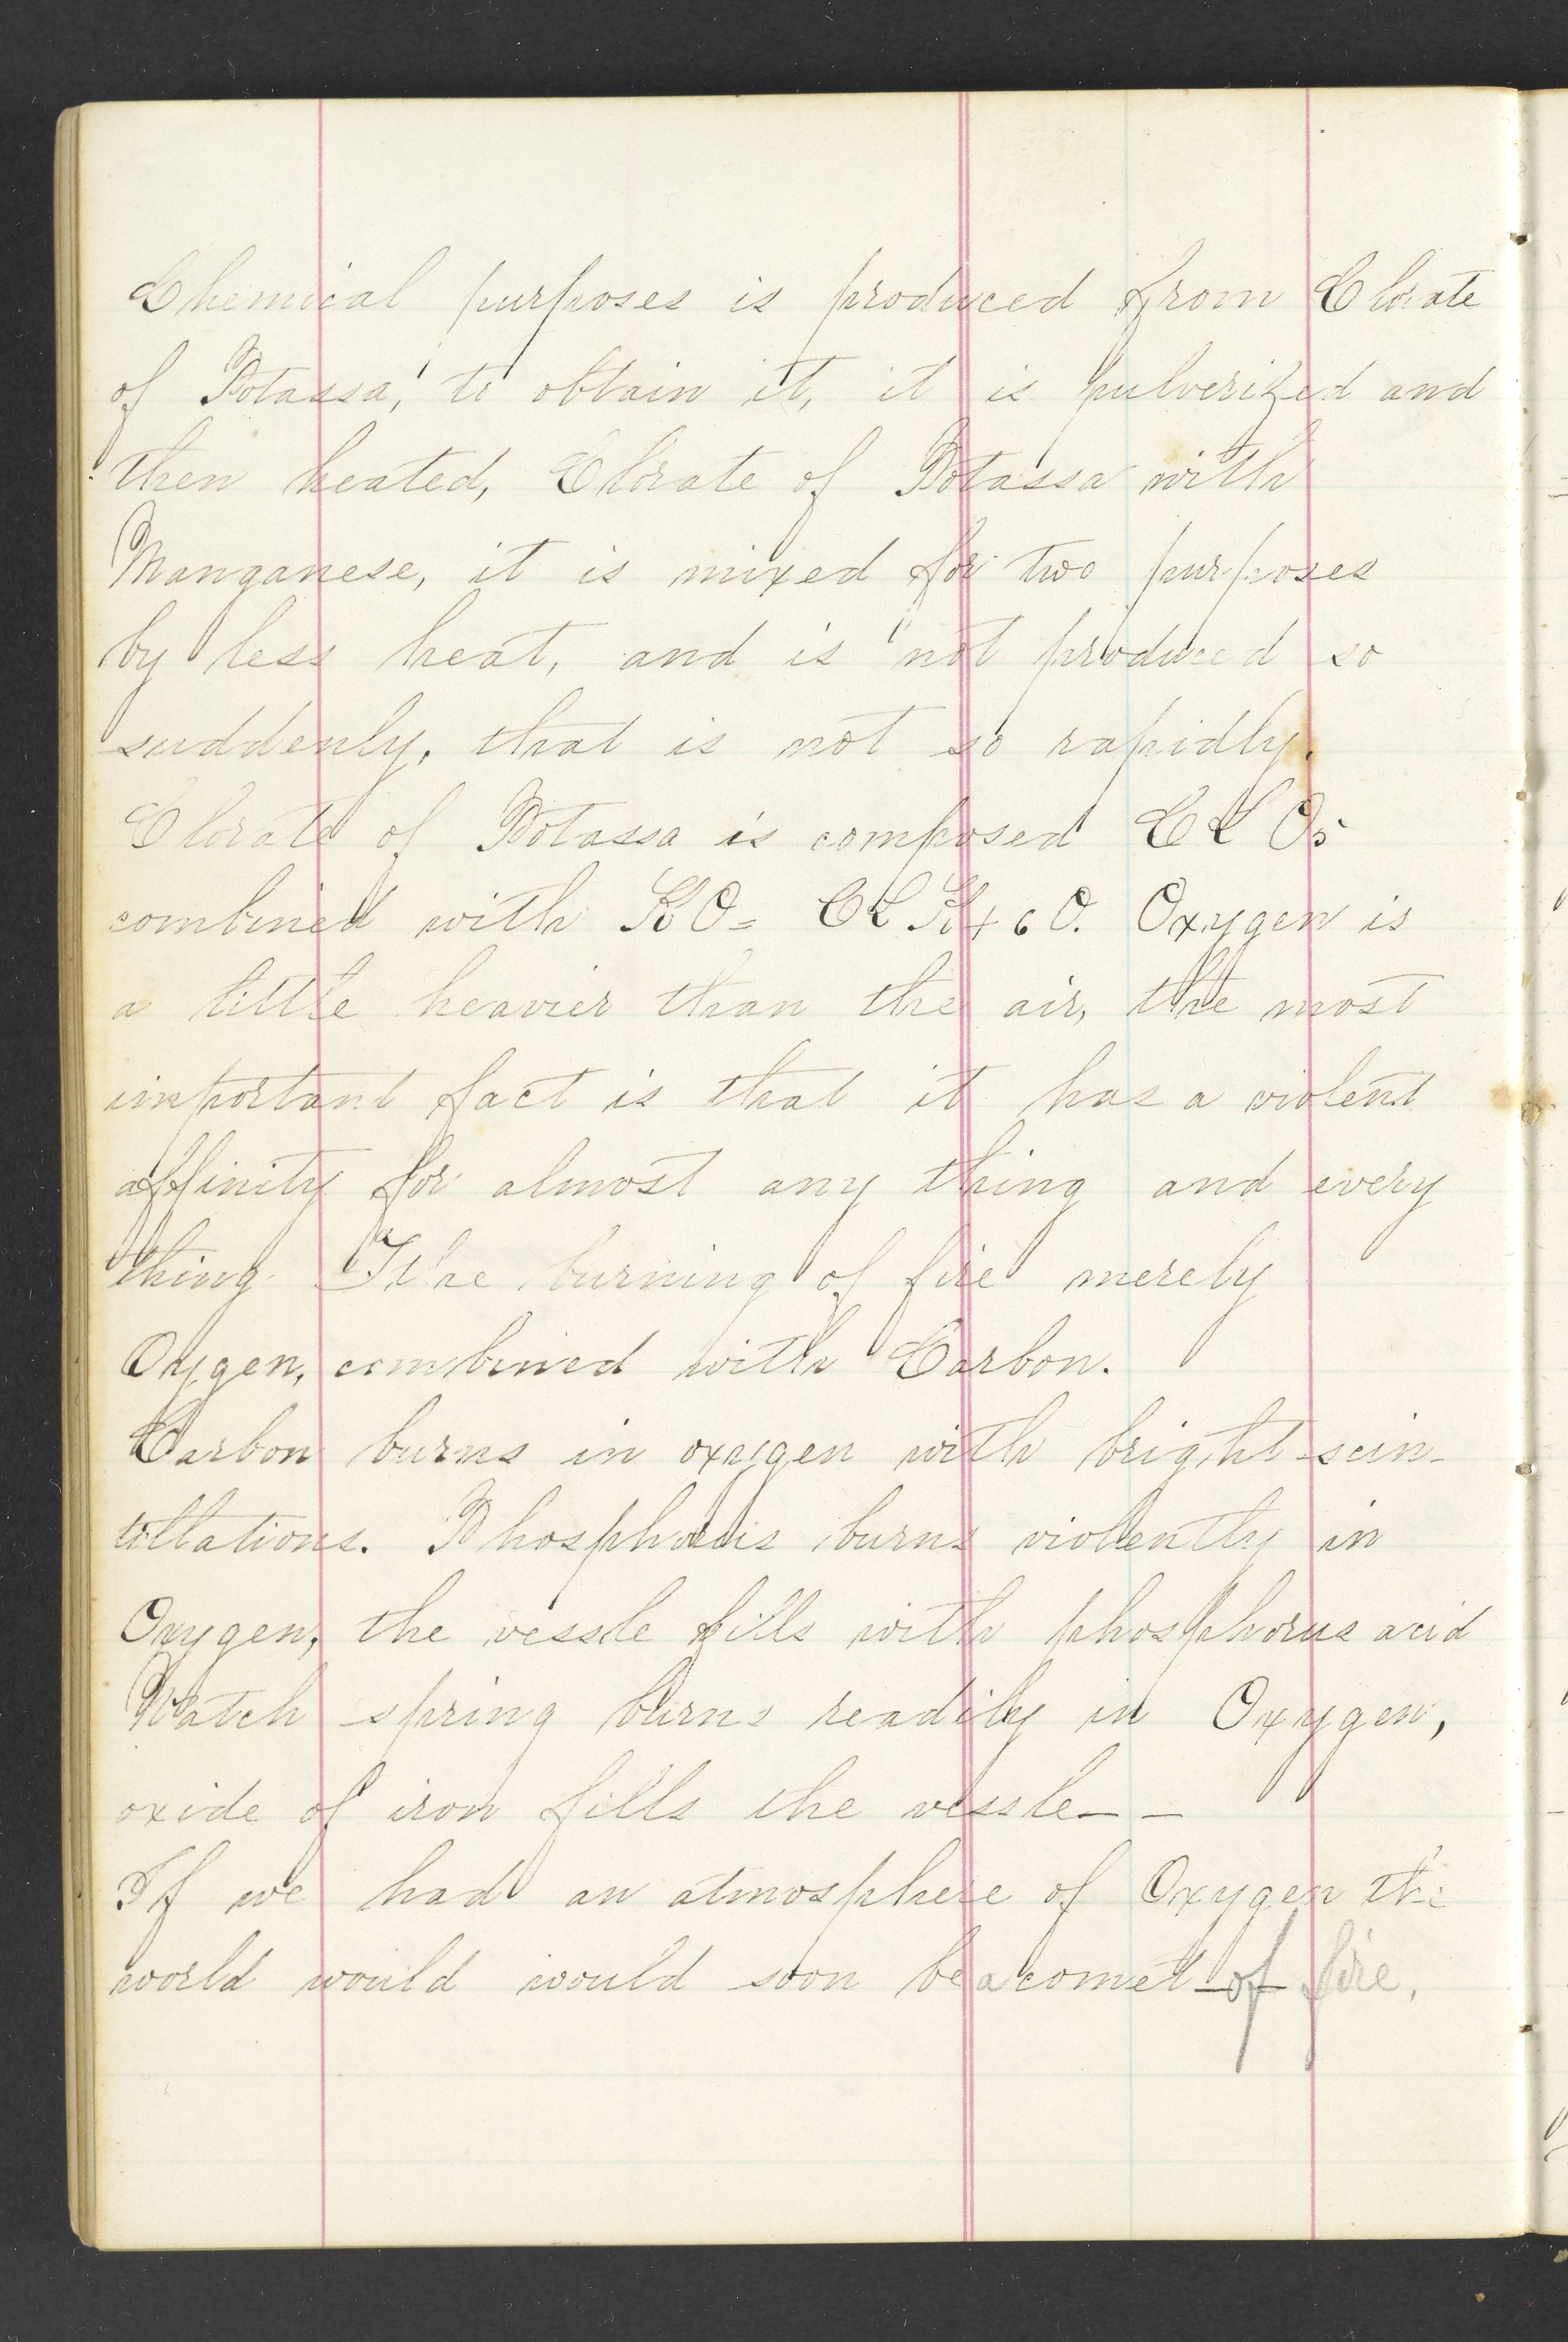 Chemical purposes is produced from Clorate
of Potassa, to obtain it, it is pulverized and
then heated, Clorate of Potassa with
Manganese, it is mixed for two purposes
by less heat, and is not produced so
suddenly, that is not so rapidly.
Clorate of Potassa is composed Cl O5
combined with KO = Cl K + 6 O. Oxygen is
a little heavier than the air, the most
important fact is that it has a violent
affinity for almost any thing and every
thing. The burning of fire merely
Oxygen, combined with Carbon.
Carbon burns in oxygen with bright scin-
tillations. Phosphorus burns violently in
Oxygen, the vessle fills with phosphorus acid
Watch spring burns readily in Oxygen,
oxide of iron fills the vessle – –
If we had an atmosphere of Oxygen the
world would would soon be a comet of fire.